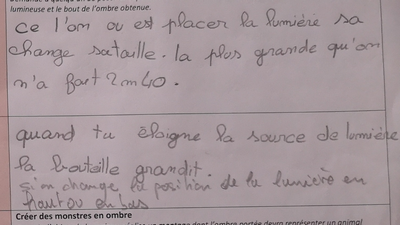 lumineuse et le bout de l'ombre obtenue.
ce l'on ou est placer la lumière sa
change sataille. la plus grande qu'on
n'a fait 2m40.
quand tu éloigne la source de lumière
la bouteille grandit.
si on change la position de la lumière en
haut ou en bas
Créer des monstres en ombre